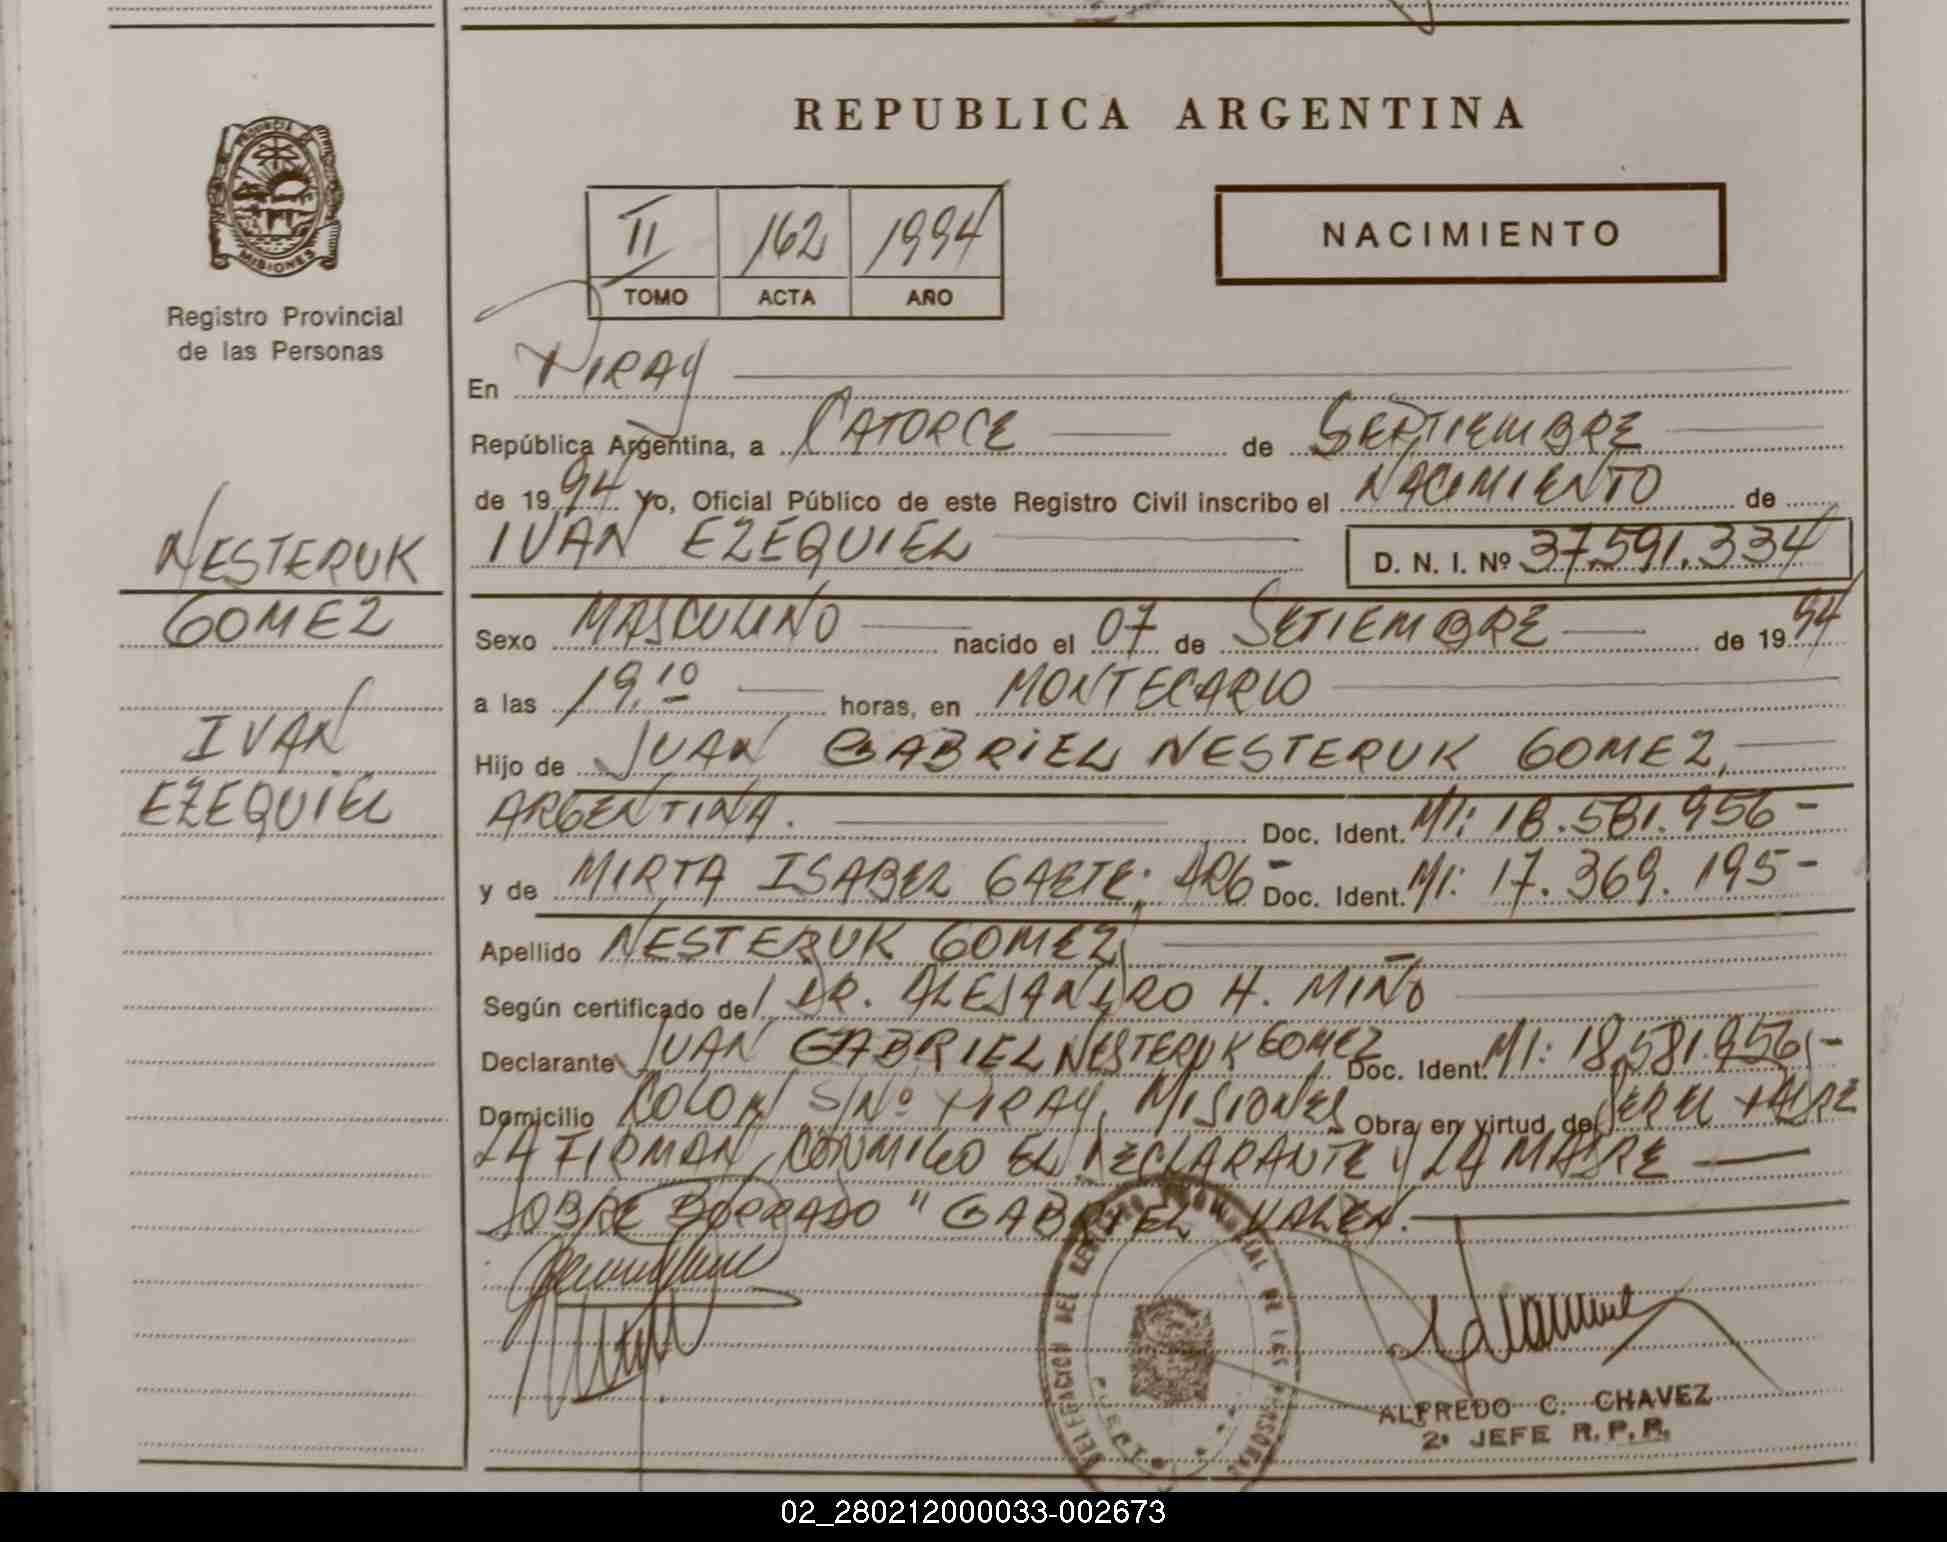 REPUBLICA ARGENTINA
PROVINCIA DE
MISIONES
Registro Provincial
de las Personas
II 162 1994
TOMO ACTA AÑO
NACIMIENTO
En PIRAY
República Argentina, a CATORCE de SEPTIEMBRE
de 1994 Yo, Oficial Público de este Registro Civil inscribo el NACIMIENTO de
IVAN EZEQUIEL D. N. I. Nº 37.591.334
NESTERUK
GOMEZ
IVAN
EZEQUIEL
Sexo MASCULINO nacido el 07 de SETIEMBRE de 1994
a las 19,10 horas, en MONTECARLO
Hijo de JUAN GABRIEL NESTERUK GOMEZ,
ARGENTINA. Doc. Ident. MI: 18.581.956-
y de MIRTA ISABEL GAETE; ARG- Doc. Ident. MI: 17.369.195-
Apellido NESTERUK GOMEZ
Según certificado de DR. ALEJANDRO H. MIÑO
Declarante JUAN GABRIEL NESTERUK GOMEZ Doc. Ident. MI: 18.581.956-
Domicilio COLON S/Nº PIRAY, MISIONES Obra en virtud de SER EL PADRE
LA FIRMAN CONMIGO EL DECLARANTE Y LA MADRE
SOBRE BORRADO "GABRIEL VALEN.
DELEGACION DEL REGISTRO PROVINCIAL DE LAS PERSONAS
ALFREDO C. CHAVEZ
2º JEFE R.P.P.
02_280212000033-002673